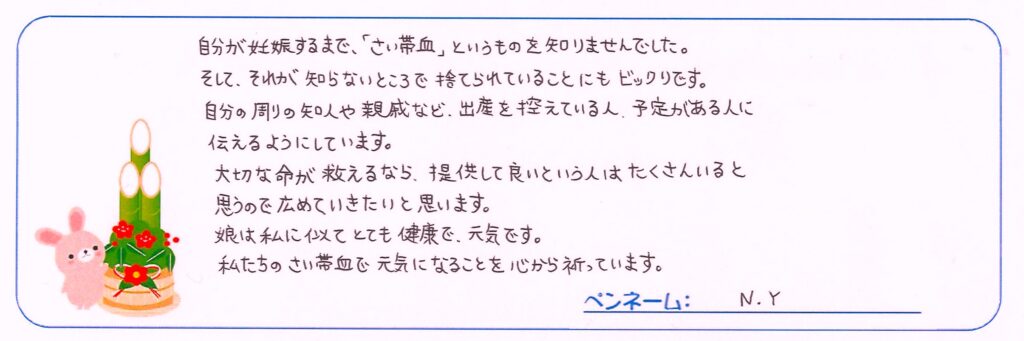 自分が妊娠するまで、「さい帯血」というものを知りませんでした。
そして、それが知らないところで捨てられていることにもビックリです。
自分の周りの知人や親戚など、出産を控えている人、予定がある人に
伝えるようにしています。
大切な命が救えるなら、提供して良いという人はたくさんいると
思うので広めていきたいと思います。
娘は私に似てとても健康で、元気です。
私たちのさい帯血で元気になることを心から祈っています。
ペンネーム: N.Y